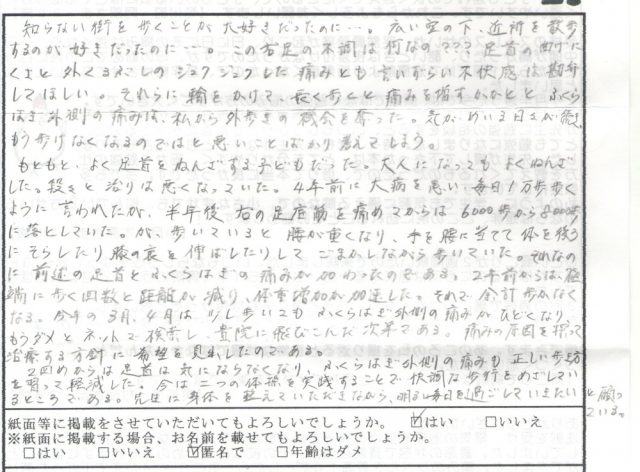 知らない街を歩くことが大好きだったのに…。広い空の下、近所を散歩
するのが好きだったのに…。この右足の不調は何なの???足首の曲げに
くさと外くるぶしのジュクジュクした痛みとも言いずらい不快感は勘弁
してほしい。それらに輪をかけて、長く歩くと痛みを増すかかとと、ふくら
はぎ外側の痛みは、私から外歩きの機会を奪った。気がめいる日々が続き
もう歩けなくなるのではと悪いことばかり考えてしまう。
もともと、よく足首をねんざする子どもだった。大人になってもよくねんざ
した。段々と治りは悪くなっていた。4年前に大病を患い、毎日1万歩歩く
ように言われたが、半年後右の足底筋を痛めてからは6000歩から8000歩
に落としていた。が、歩いていると腰が重くなり、手を腰に当てて体を後ろ
にそらしたり膝の裏を伸ばしたりしてごまかしながら歩いていた。それなの
に前述の足首とふくらはぎの痛みが加わったのである。2年前からは極
端に歩く回数と距離が減り、体重増加が加速した。それで余計歩かなく
なる。今年の3月、4月は少し歩いてもふくらはぎ外側の痛みがひどくなり、
もうダメとネットで検索し貴院に飛びこんだ次第である。痛みの原因を探って
治療する方針に希望を見出したのである。
2回めからは足首は気にならなくなり、ふくらはぎ外側の痛みも正しい歩き方
を習って軽減した。今は二つの体操を実践することで快調な歩行をめざしてい
るところである。先生に身体を整えていただきながら、明るい毎日を過ごしていきたい
と願っ
ている。
紙面等に掲載をさせていただいてもよろしいでしょうか。 ☑はい □いいえ
※紙面に掲載する場合、お名前を載せてもよろしいでしょうか。
□はい □いいえ ☑匿名で □年齢はダメ